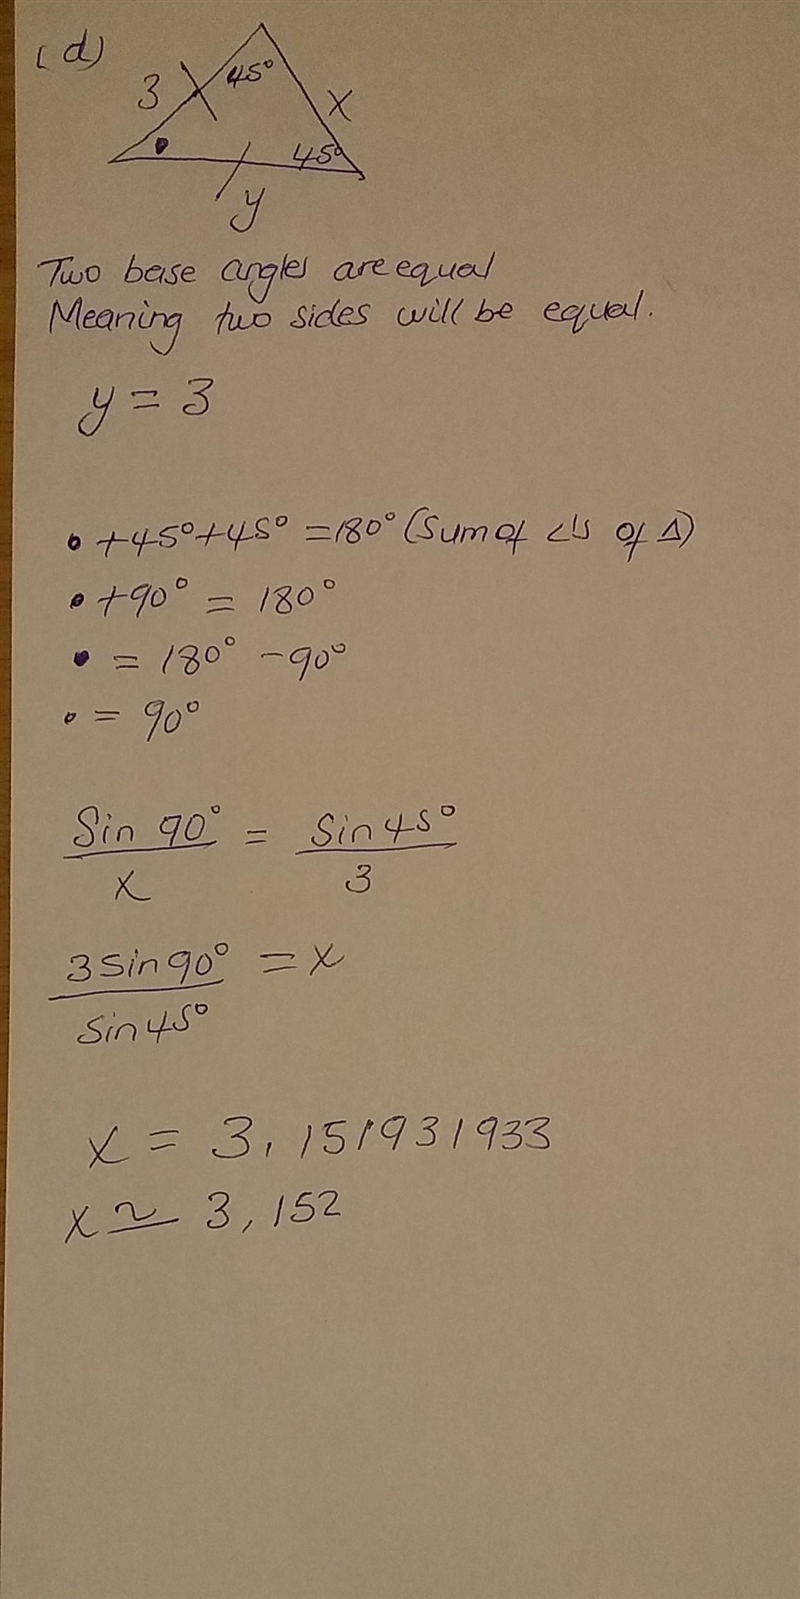 (d)
3 45° x
45°
y
Two base angles are equal
Meaning two sides will be equal.
y = 3
• +45°+45° =180° (Sum of <'s of Δ)
• +90° = 180°
• = 180° -90°
• = 90°
Sin 90° = Sin 45°
x 3
3 sin 90° = x
sin 45°
x = 3,151931933
x ≃ 3,152